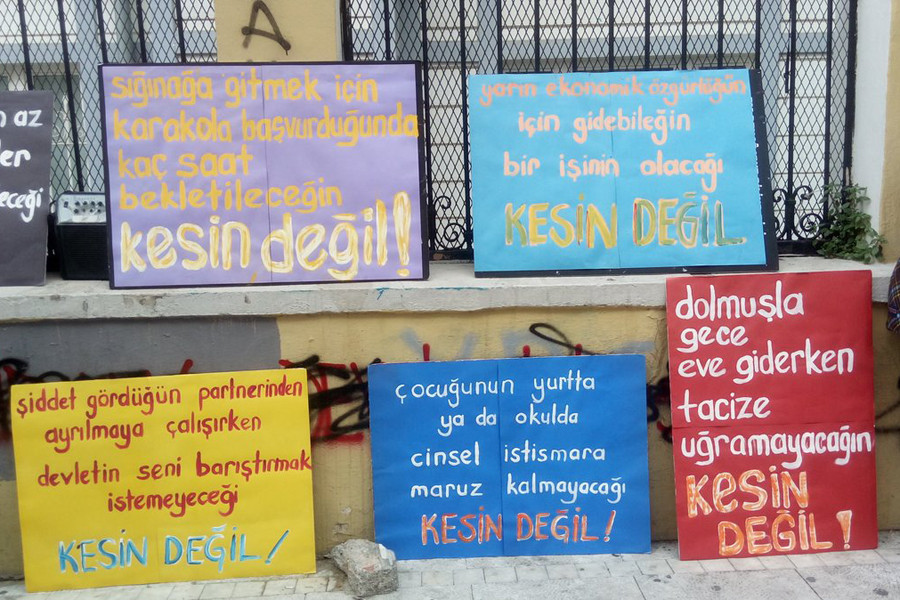 n az
ler
eceği
sığınağa gitmek için
karakola başvurduğunda
kaç saat
bekletileceğin
kesin değil!
yarın ekonomik özgürlüğün
için gidebileğin
bir işinin olacağı
KESİN DEĞİL
şiddet gördüğün partnerinden
ayrılmaya çalışırken
devletin seni barıştırmak
istemeyeceği
KESİN DEĞİL!
çocuğunun yurtta
ya da okulda
cinsel istismara
maruz kalmayacağı
KESİN DEĞİL!
dolmuşla
gece
eve giderken
tacize
uğramayacağın
KESİN
DEĞİL!